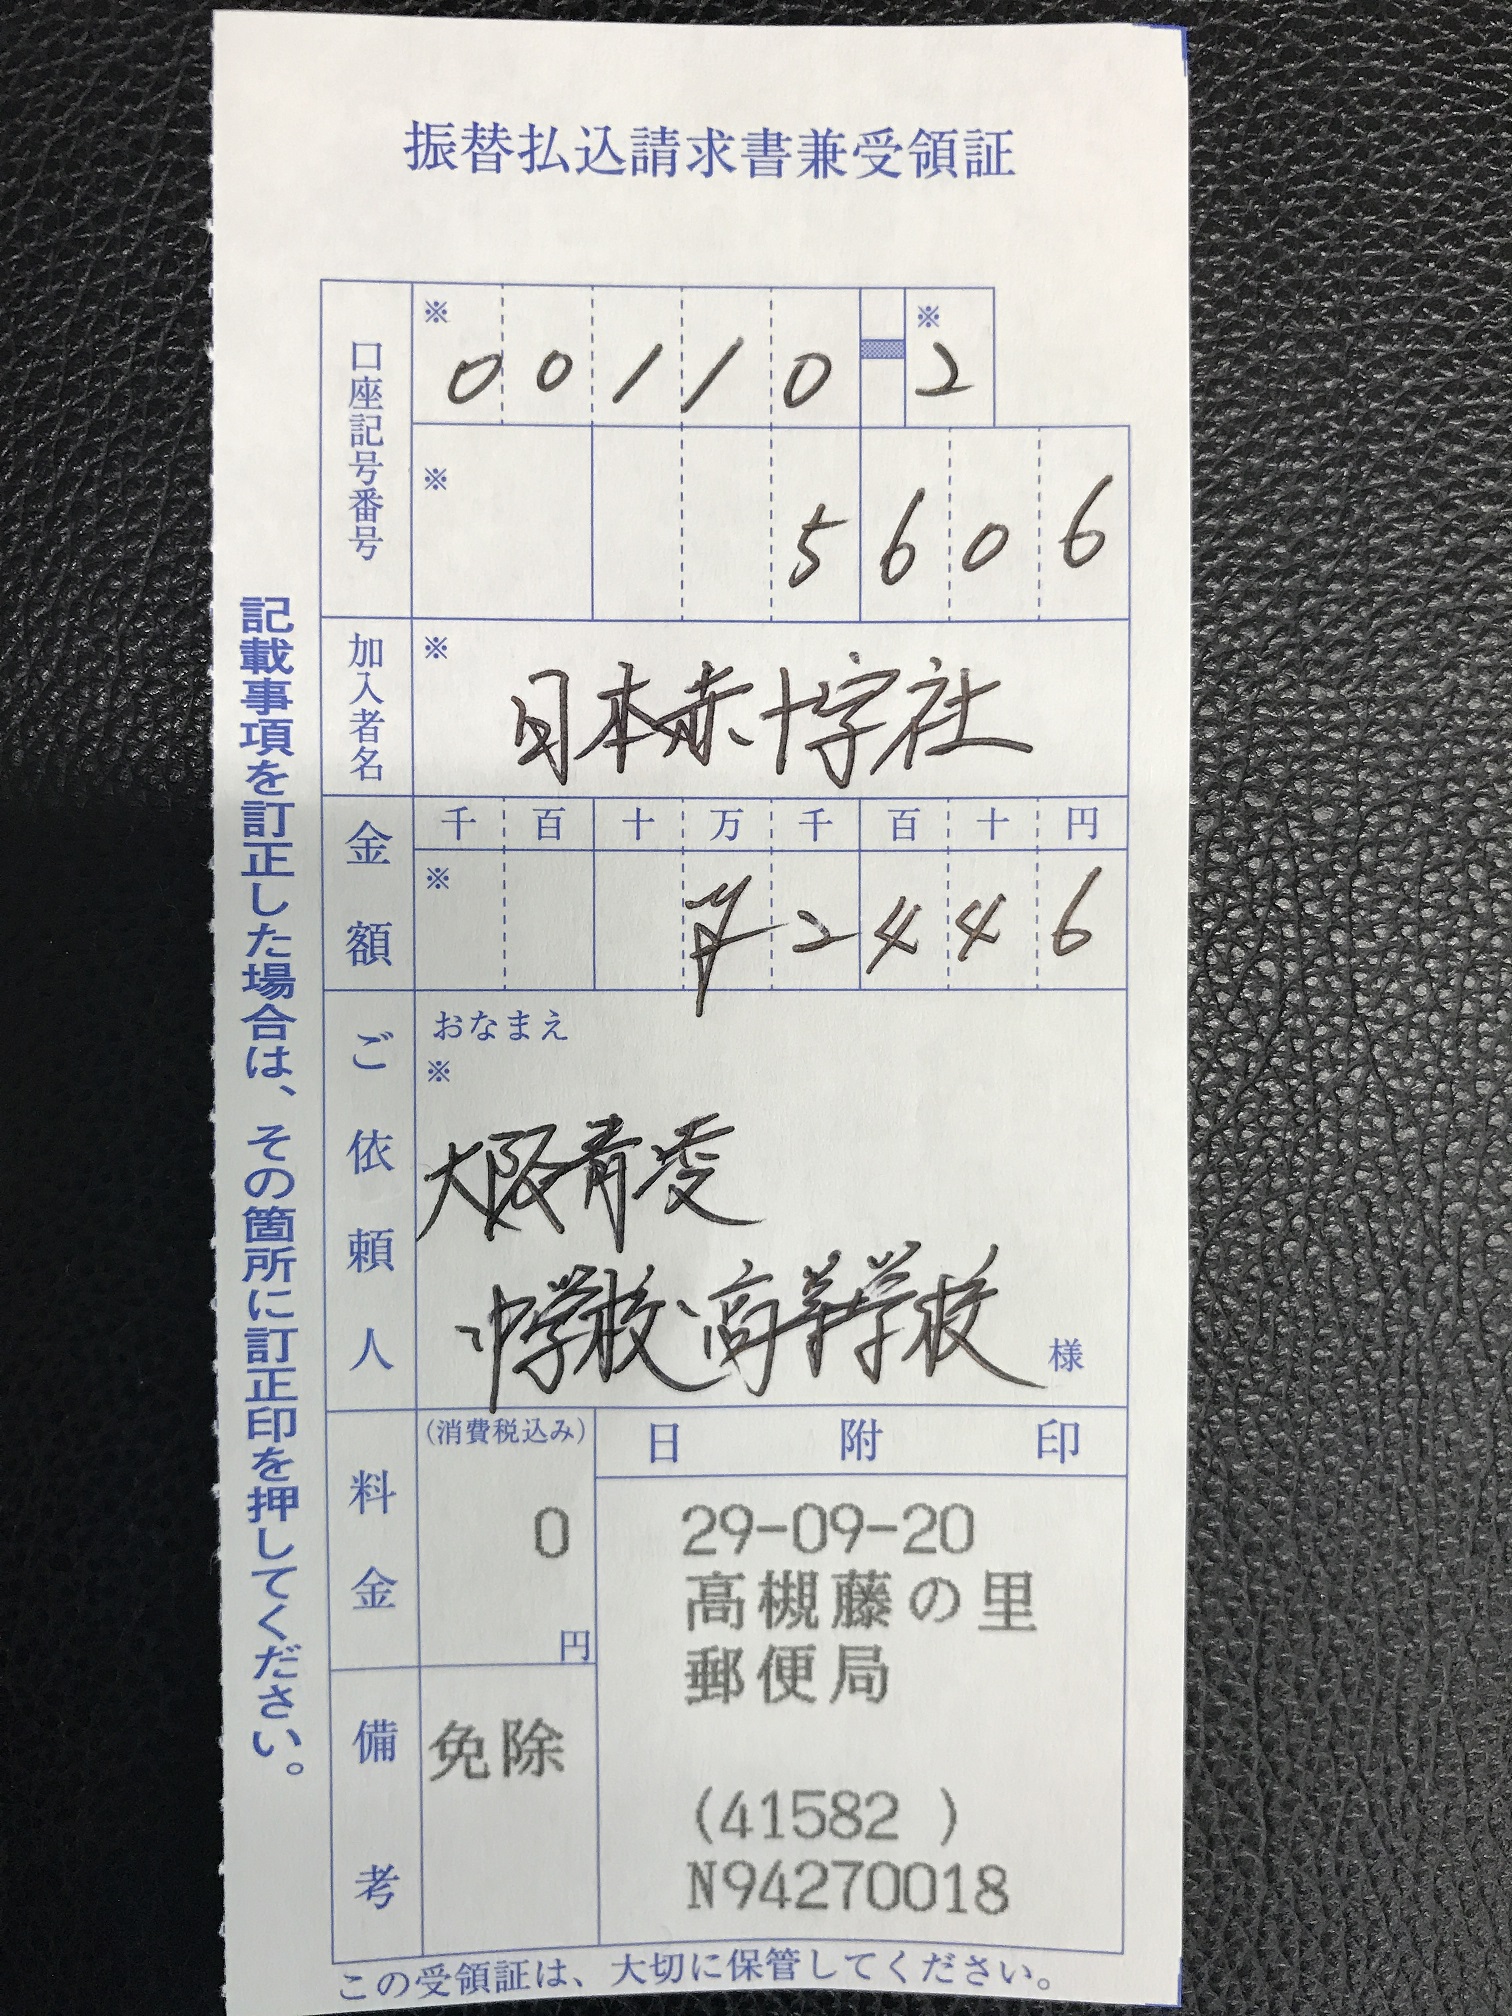 振替払込請求書兼受領証
口座記号番号
※
00110
※
2
※
5606
加入者名
※
日本赤十字社
金額
千 百 十 万 千 百 十 円
※
2446
ご依頼人
おなまえ
※
大阪青凌
中学校・高等学校
様
料金
(消費税込み)
0
円
日附印
29-09-20
高槻藤の里
郵便局
(41582 )
N94270018
備考
免除
記載事項を訂正した場合は、その箇所に訂正印を押してください。
この受領証は、大切に保管してください。